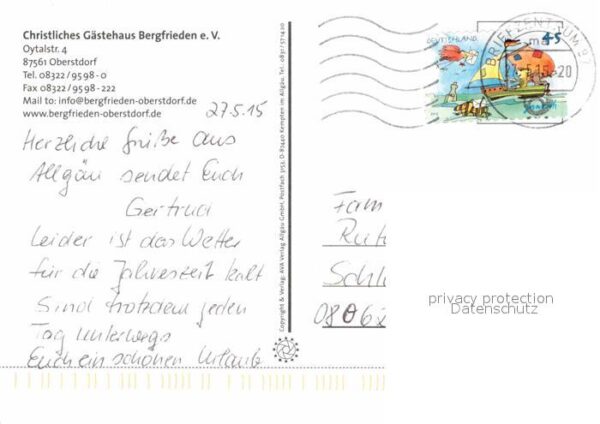 Christliches Gästehaus Bergfrieden e. V.
Oytalstr. 4
87561 Oberstdorf
Tel. 08322/9598-0
Fax 08322/9598-222
Mail to: info@bergfrieden-oberstdorf.de
www.bergfrieden-oberstdorf.de
27.5.15
Herzliche Grüße aus
Allgäu sendet Euch
Gertrud
Leider ist das Wetter
für die Jahreszeit kalt
Sind trotzdem jeden
Tag unterwegs
Euch ein schönen Urlaub
Copyright & Verlag: AVA Verlag Allgäu GmbH, Postfach 3153, D-87440 Kempten im Allgäu, Tel. 0831/5714-10
DEUTSCHLAND
45
BRIEFZENTRUM
Fam
Ruth
Schl
privacy protection
Datenschutz